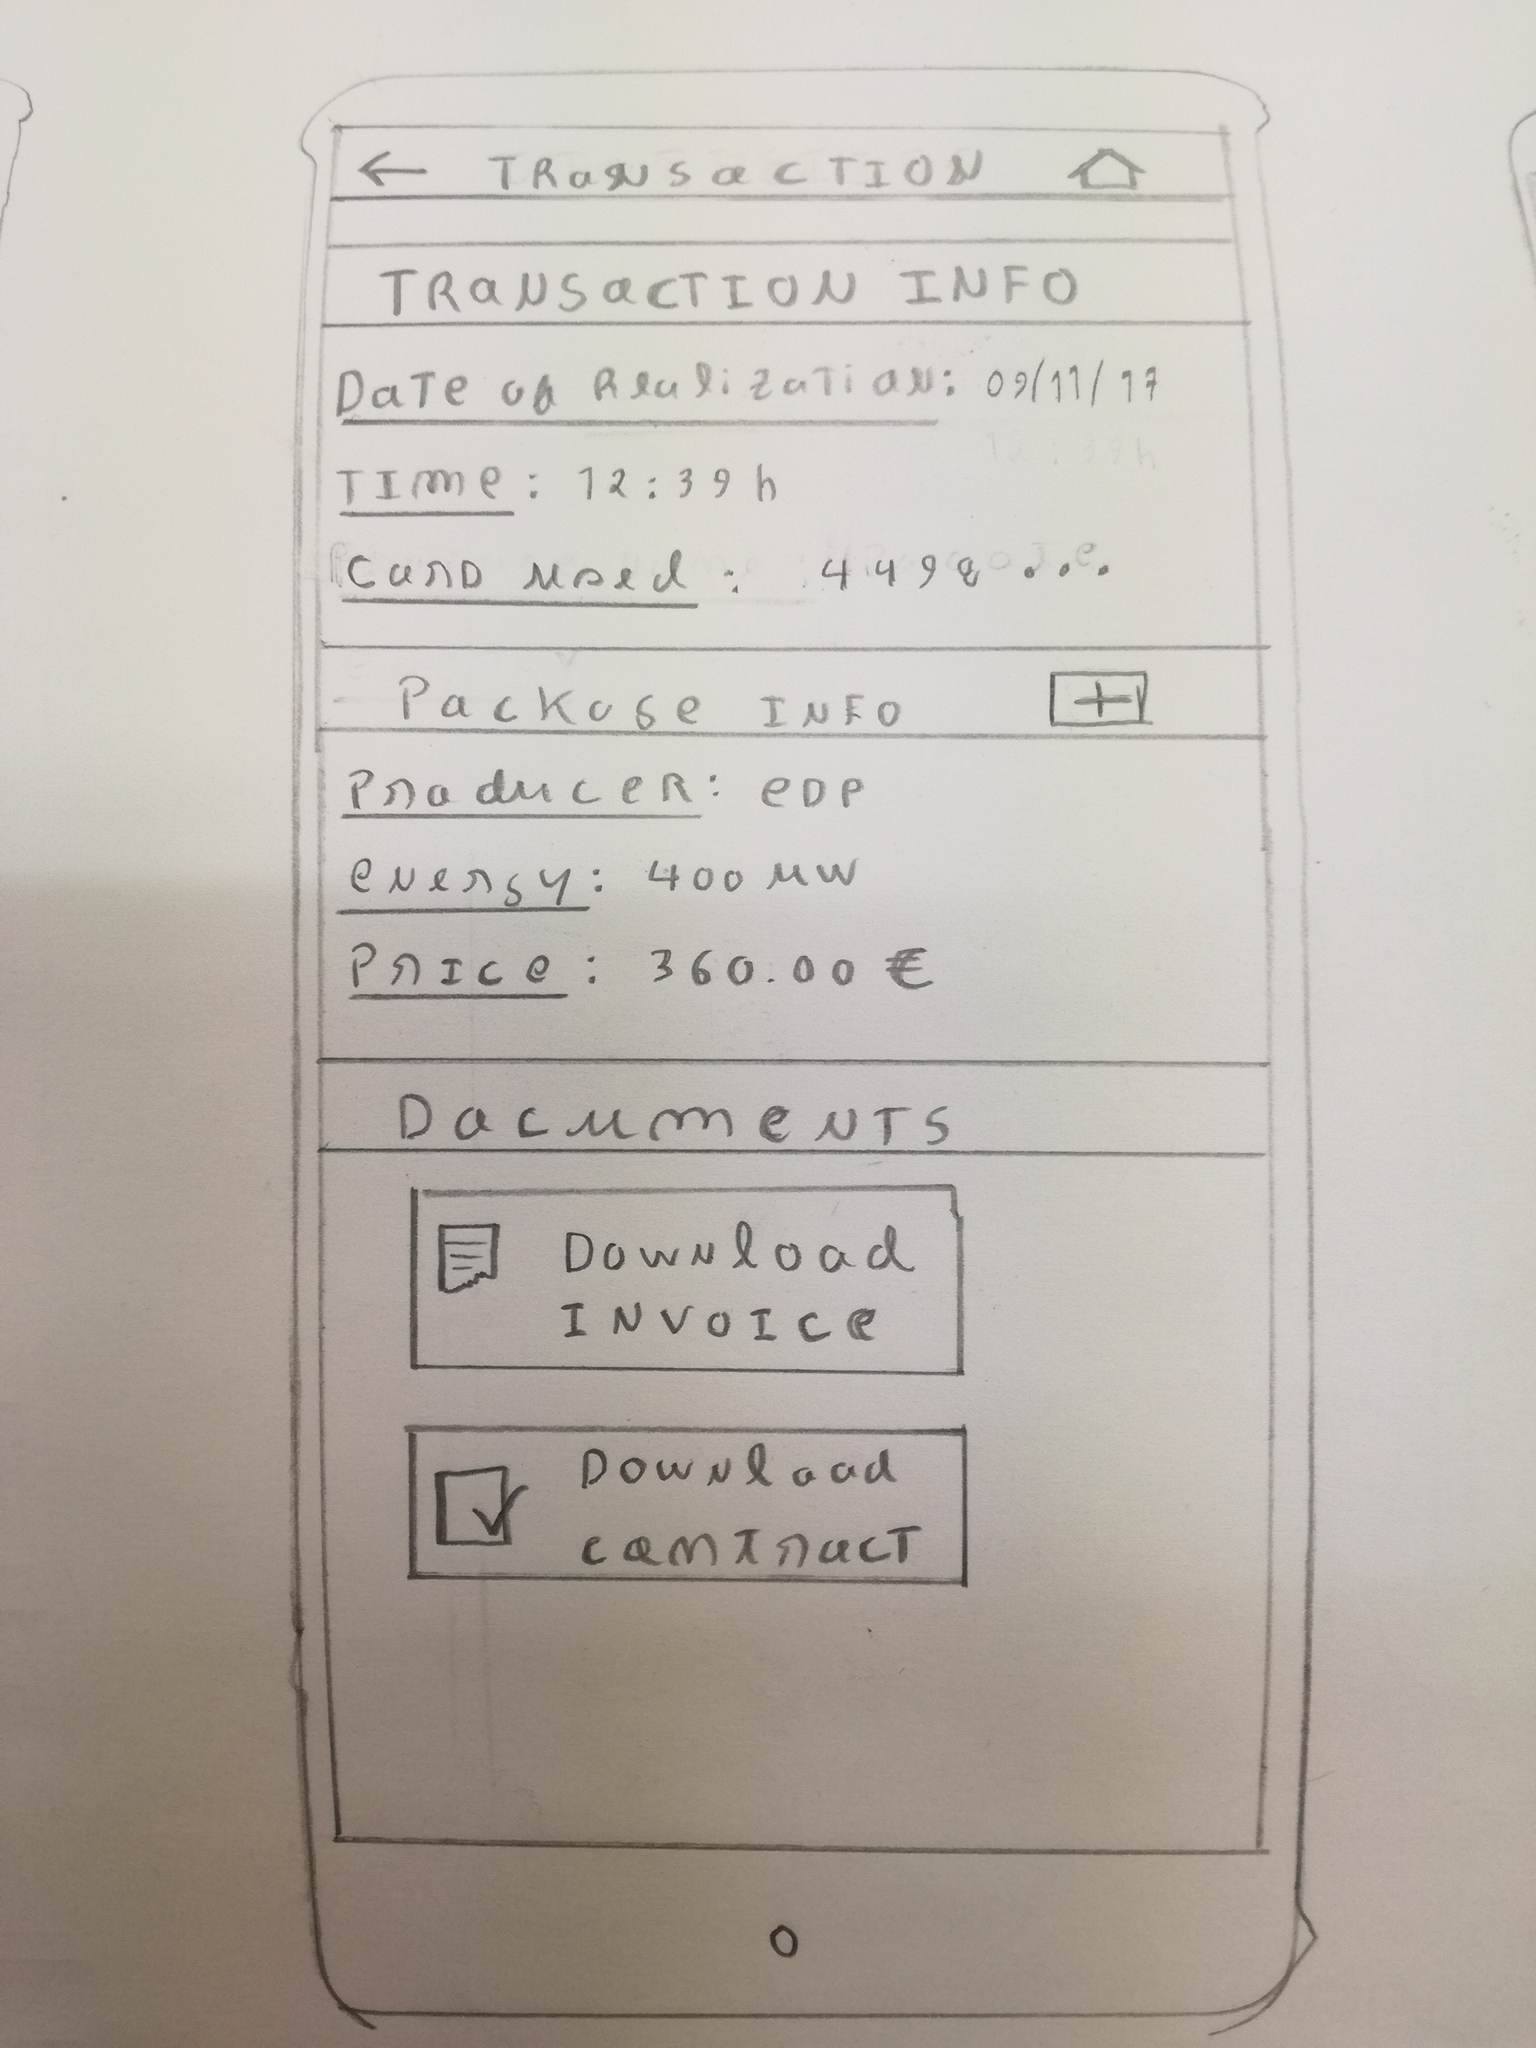 TRaNSaCTION
TRaNSaCTION INFO
DaTe of RealizaTion: 09/11/17
TIme: 12:39h
Card used: 4498...
Package INFO
PRoduceR: eDP
eNeRgy: 400 MW
PRIce: 360.00 €
DocumeNTS
DowNload
INVOICe
DowNload
coNTRacT